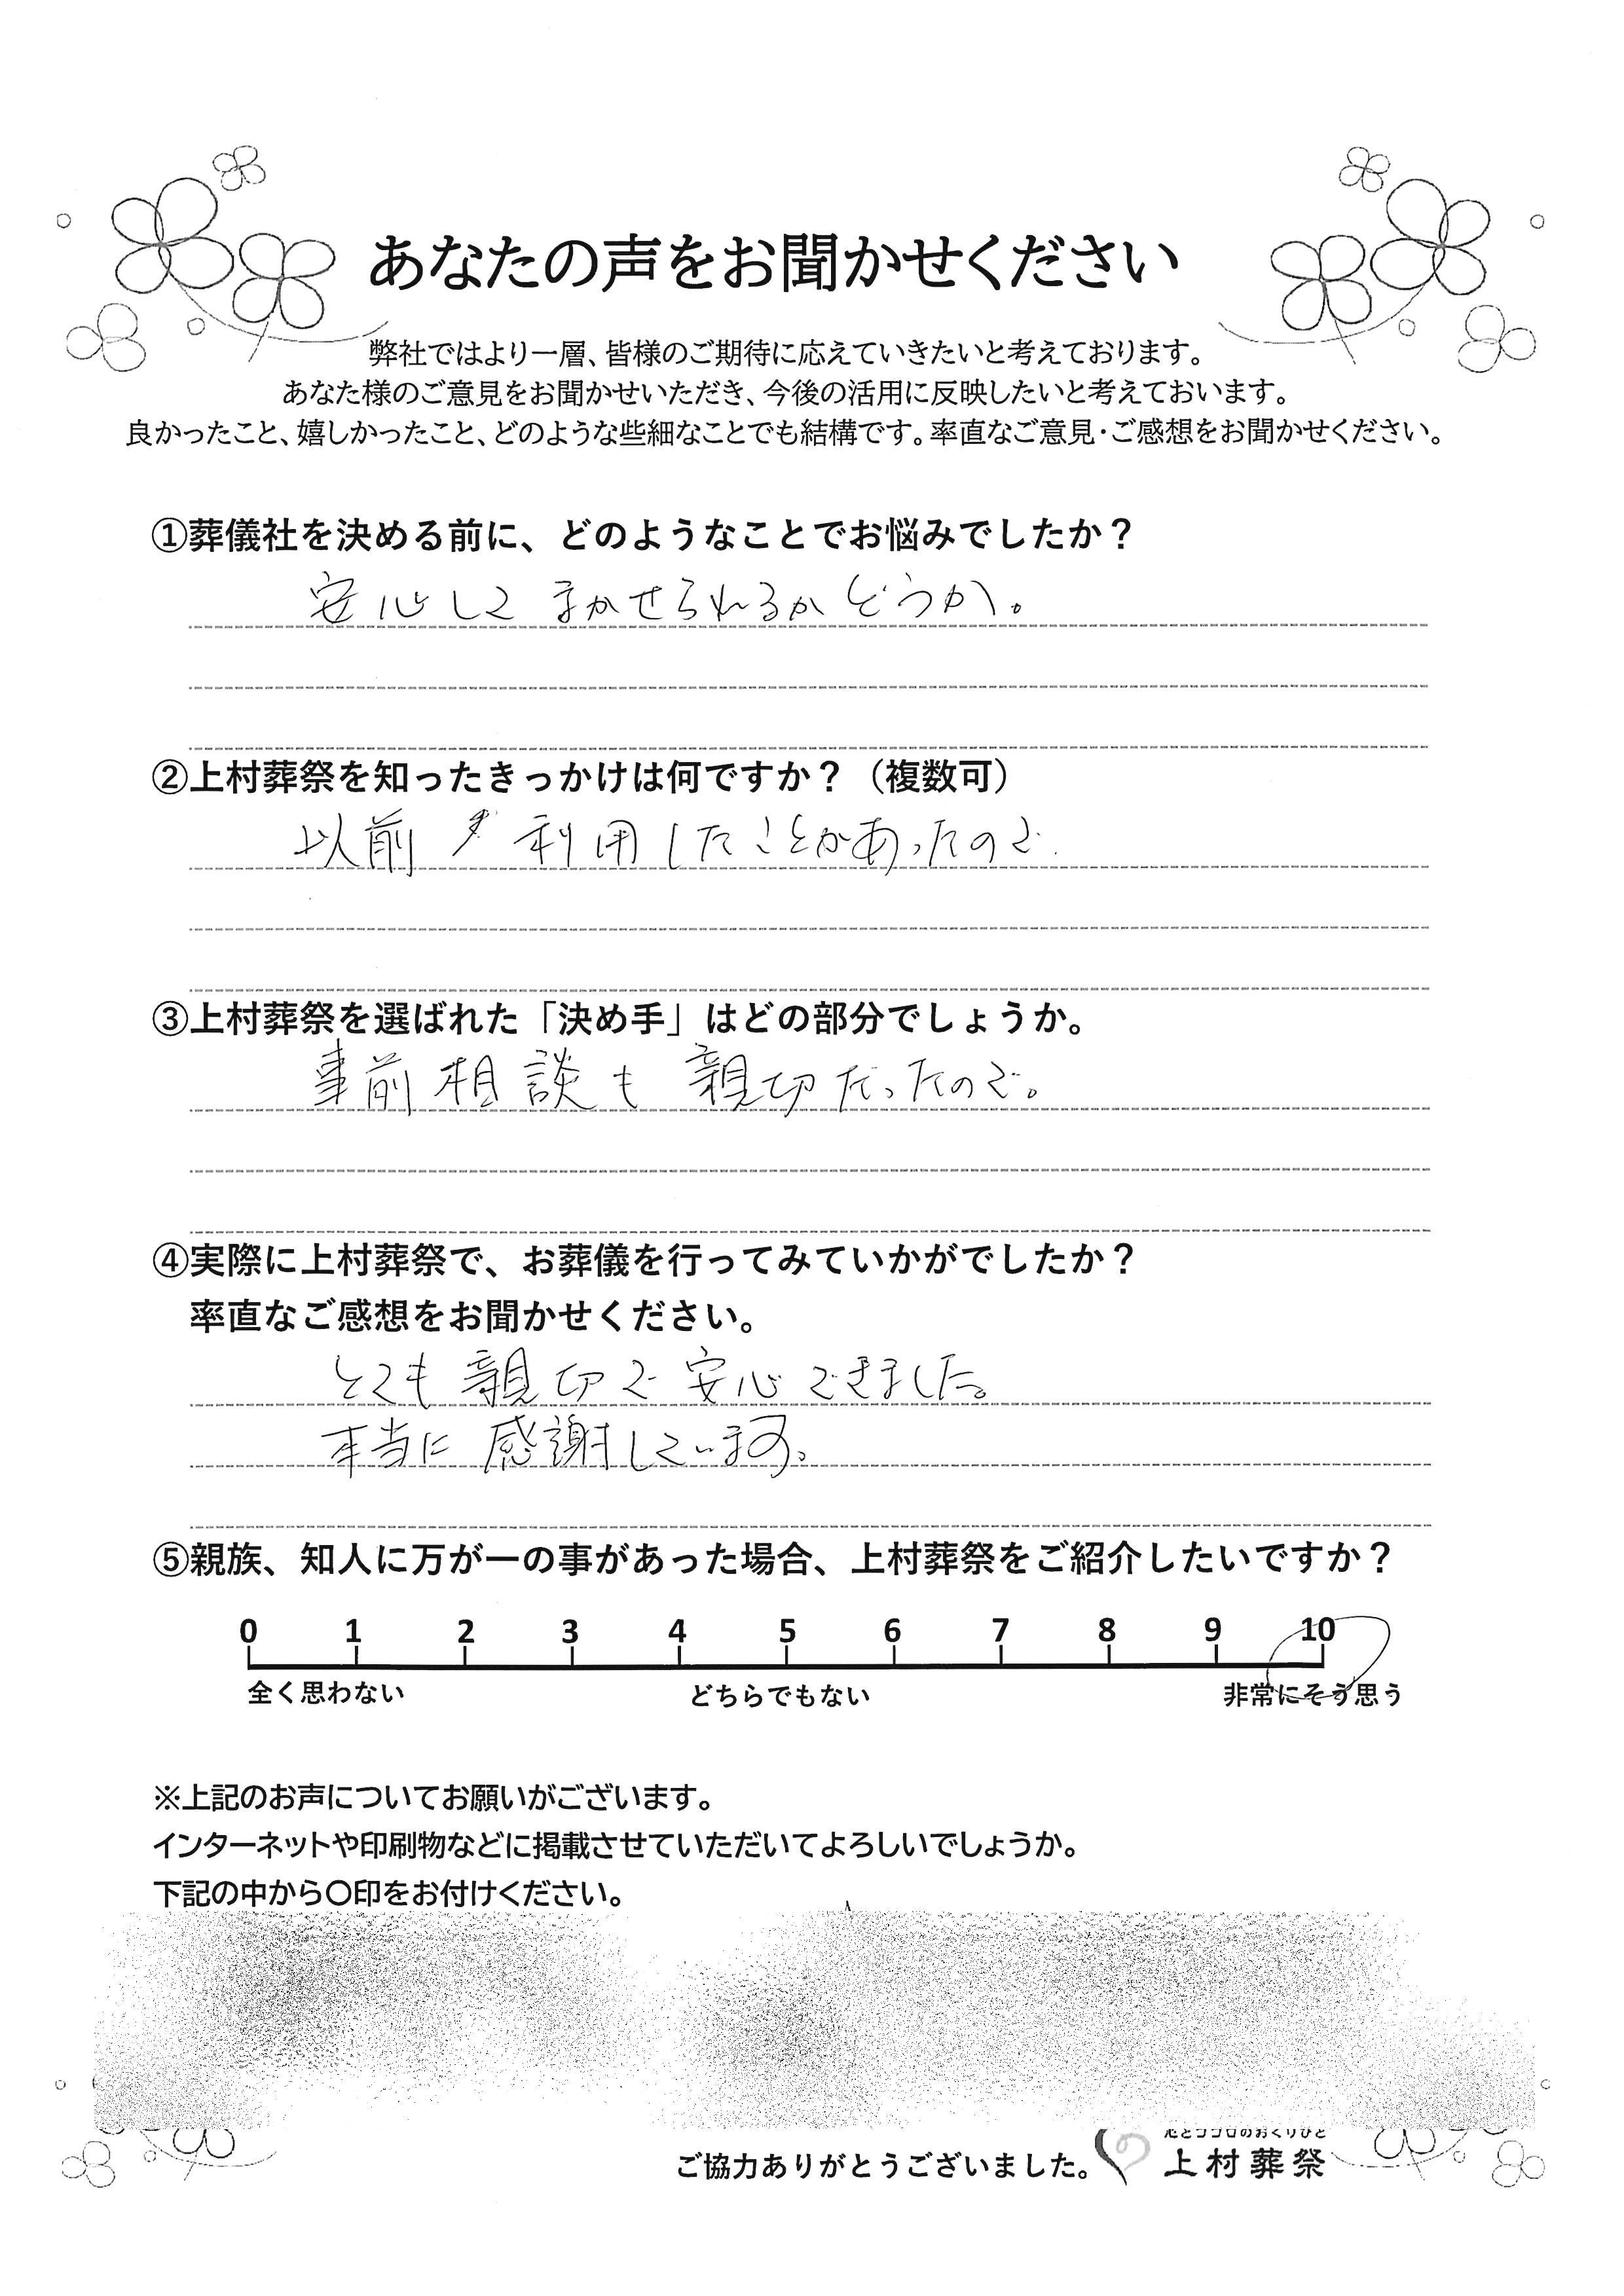 あなたの声をお聞かせください
弊社ではより一層、皆様のご期待に応えていきたいと考えております。
あなた様のご意見をお聞かせいただき、今後の活用に反映したいと考えておいます。
良かったこと、嬉しかったこと、どのような些細なことでも結構です。率直なご意見・ご感想をお聞かせください。
①葬儀社を決める前に、どのようなことでお悩みでしたか？
安心してまかせられるかどうか。
②上村葬祭を知ったきっかけは何ですか？（複数可）
以前 利用したことがあったので
③上村葬祭を選ばれた「決め手」はどの部分でしょうか。
事前相談も親切だったので。
④実際に上村葬祭で、お葬儀を行ってみていかがでしたか？
率直なご感想をお聞かせください。
とても親切で安心できました。
本当に感謝しています。
⑤親族、知人に万が一の事があった場合、上村葬祭をご紹介したいですか？
0 1 2 3 4 5 6 7 8 9 10
全く思わない どちらでもない 非常にそう思う
※上記のお声についてお願いがございます。
インターネットや印刷物などに掲載させていただいてよろしいでしょうか。
下記の中から〇印をお付けください。
心とココロのおくりびと
ご協力ありがとうございました。 上村葬祭